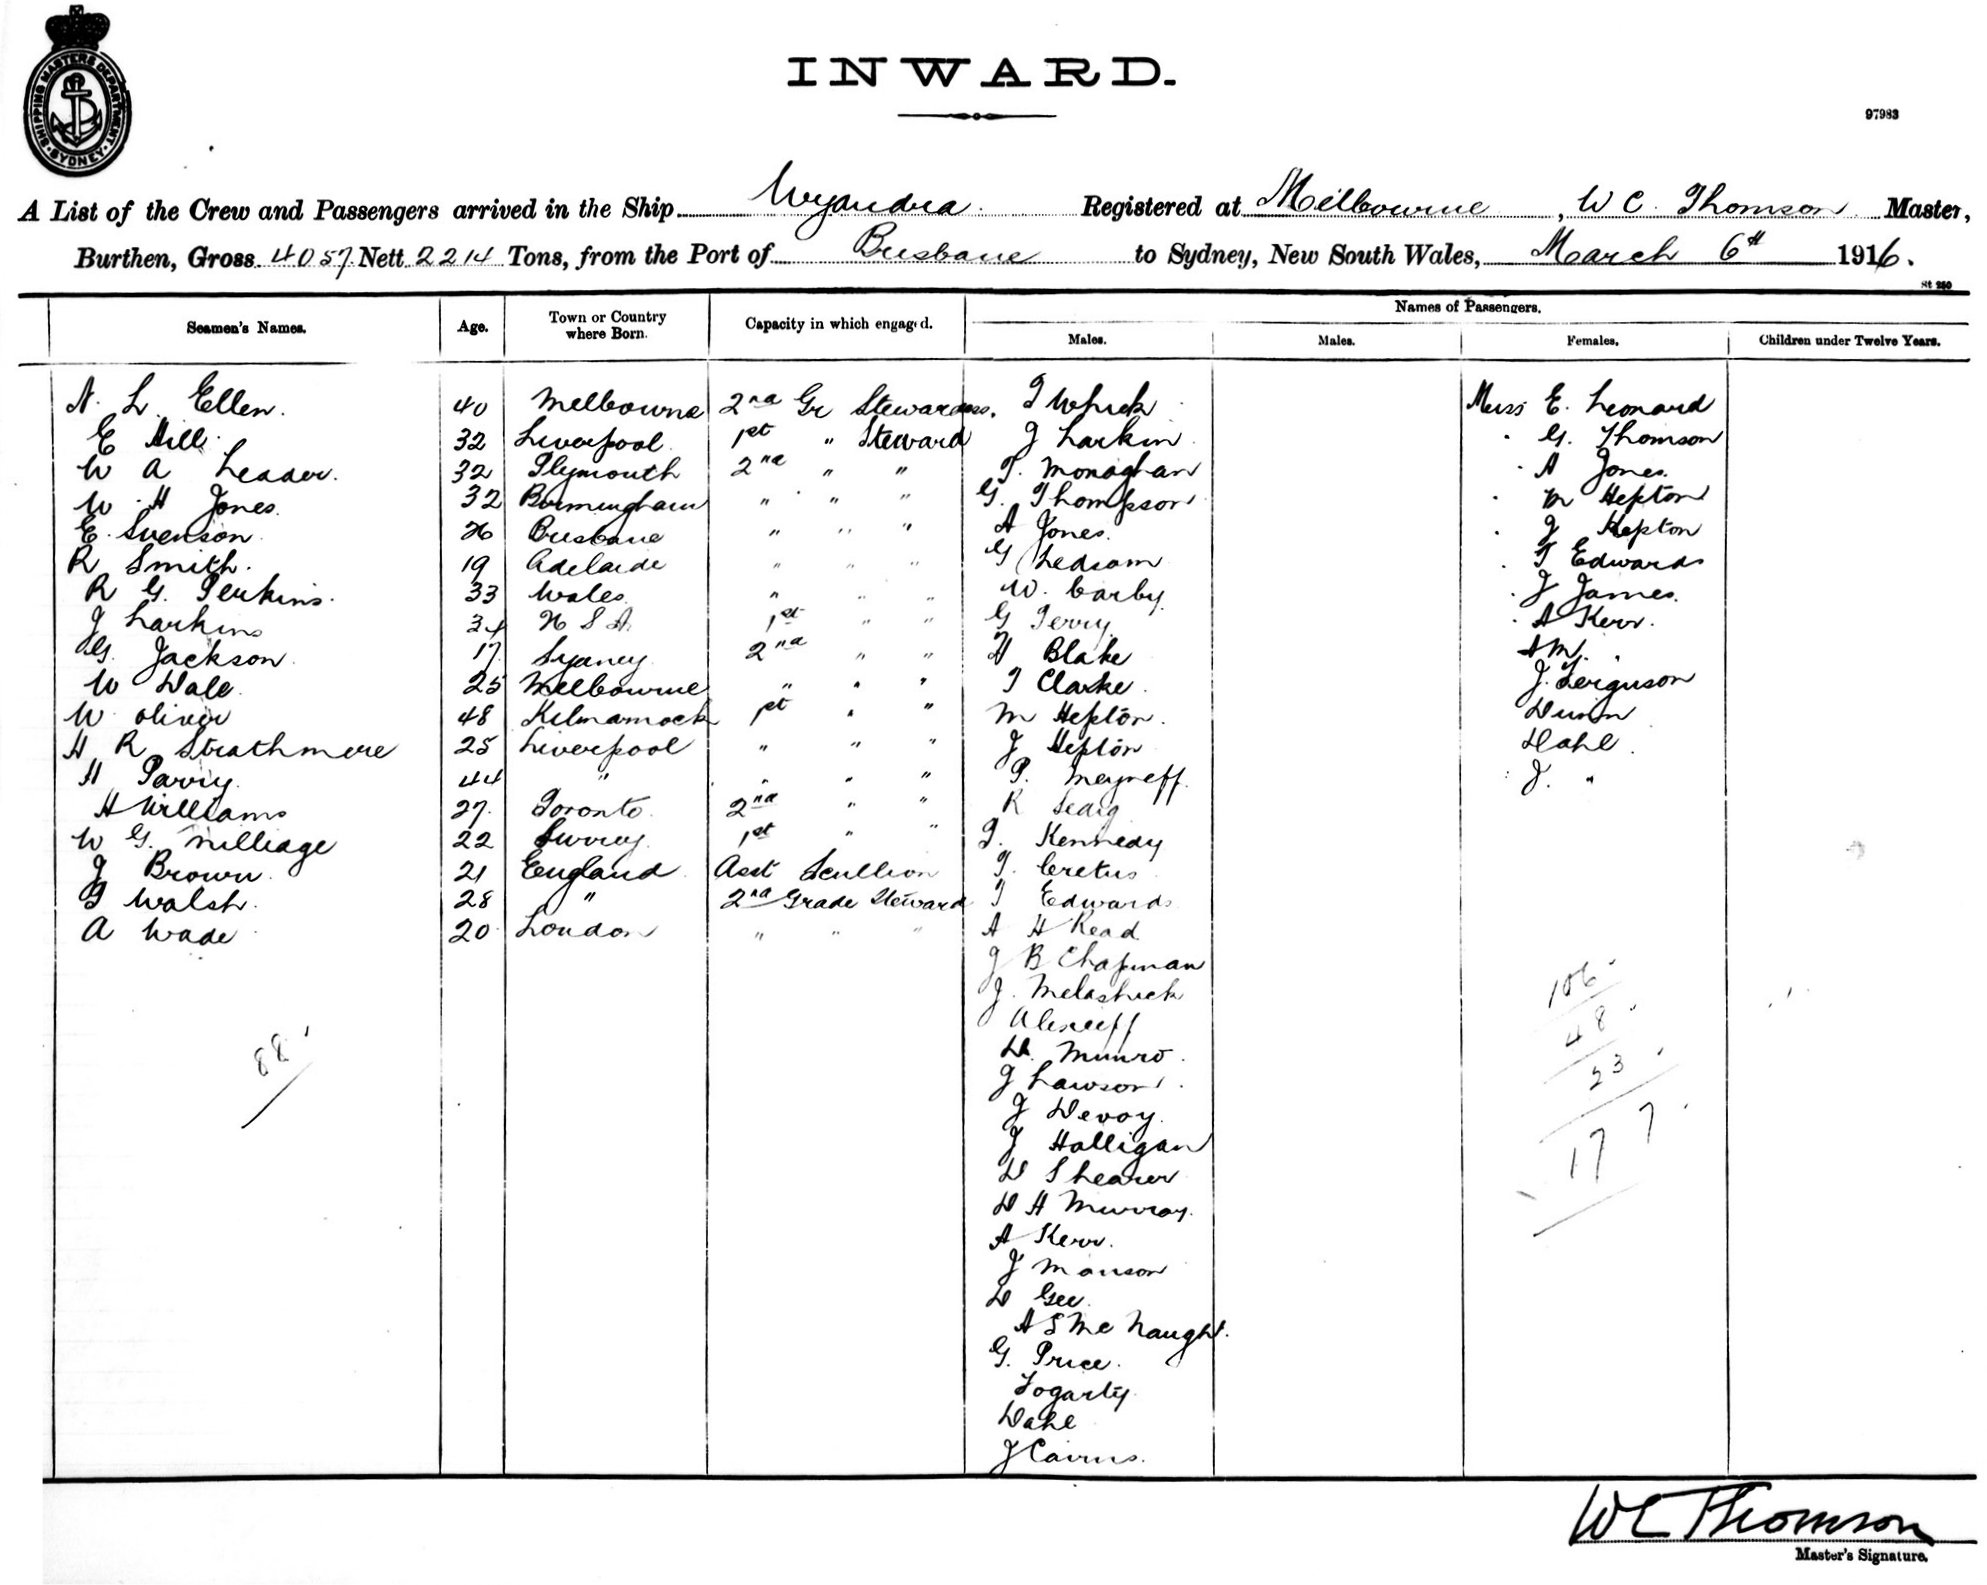 SHIPPING MASTERS DEPARTMENT. SYDNEY.
INWARD.
97983
A List of the Crew and Passengers arrived in the Ship Wyandra. Registered at Melbourne, W C. Thomson Master,
Burthen, Gross 4057 Nett 2214 Tons, from the Port of Brisbane to Sydney, New South Wales, March 6th 1916.
St 250
Seamen's Names. Age. Town or Country where Born. Capacity in which engaged. Names of Passengers.
Males. Males. Females. Children under Twelve Years.
N. L. Ellen. 40 Melbourne 2nd Gr Stewardess. Miss E. Leonard
E Hill. 32 Liverpool 1st " Steward J Larkin " G. Thomson
W A Leader. 32 Plymouth 2nd " " T. Monaghan " A Jones.
W. H Jones. 32 Birmingham " " " G. Thompson " M Hepton
E. Svenson 26 Brisbane " " " A Jones. " J Hepton
R Smith. 19 Adelaide " " " G Ledsom " T Edwards
R G. Perkins. 33 Wales " " " W. Carby. " J James.
J Larkins 34 1st " " G Terry. " A Kerr.
G. Jackson. 17 Sydney 2nd " " H Blake A M. "
W Dale 25 Melbourne " " " T Clarke. J. Ferguson
W. Oliver 48 Kilmarnock 1st " " M Hepton. Dunn
H R Strathmere 25 Liverpool " " " J Hepton Dahl.
H Parry. 44 " " " " P. J. "
H Williams 27. Toronto. 2nd " " R
W G. Milliage 22 Surrey. 1st " " T. Kennedy
J Brown. 21 England Asst Scullion T.
T Walsh. 28 " 2nd Grade Steward T Edwards
A Wade 20 London " " " A H Read
J B Chapman
J.
D. Munro.
J Lawson.
J Devoy.
J Halligan
D Shearer
D H Murray.
A Kerr.
J Manson
D Gee.
A S Mc Naught.
G. Price.
Fogarty.
Dahl
J Cairns.
88
106
48
23
177
W C Thomson
Master's Signature.